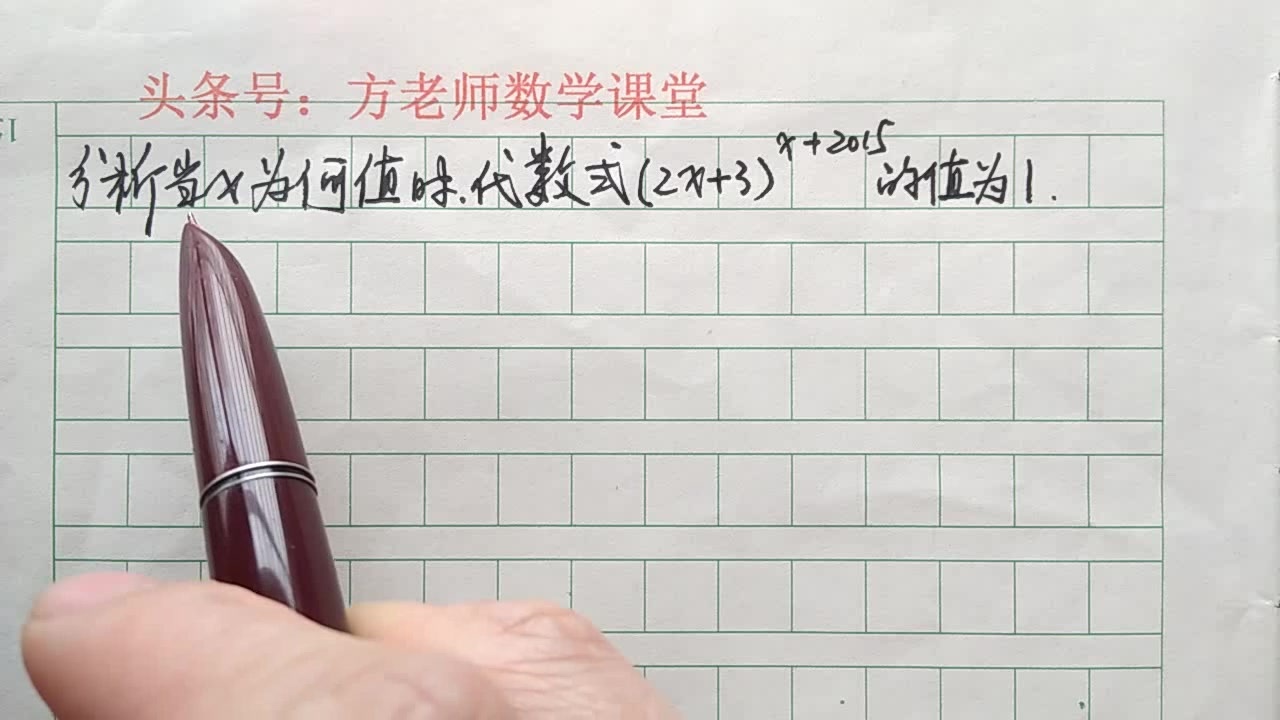 头条号：方老师数学课堂
分析当x为何值时.代数式(2x+3)^{x+2015}的值为1.